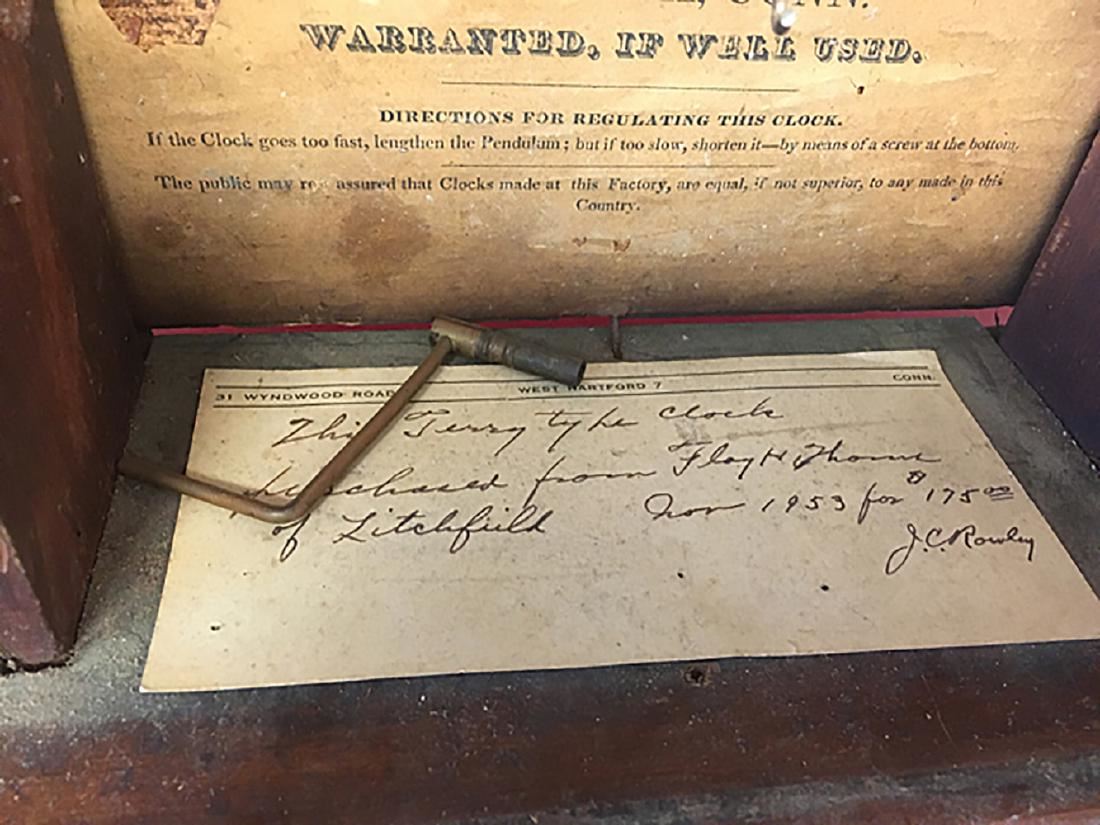 CONN.
WARRANTED, IF WELL USED.
DIRECTIONS FOR REGULATING THIS CLOCK.
If the Clock goes too fast, lengthen the Pendulum; but if too slow, shorten it—by means of a screw at the bottom.
The public may assured that Clocks made at this Factory, are equal, if not superior, to any made in this
Country.
31 WYNDWOOD ROAD WEST HARTFORD 7 CONN.
This Terry type clock
purchased from Floy H Thoms
of Litchfield Nov 1953 for $175.00
J.C. Rowley